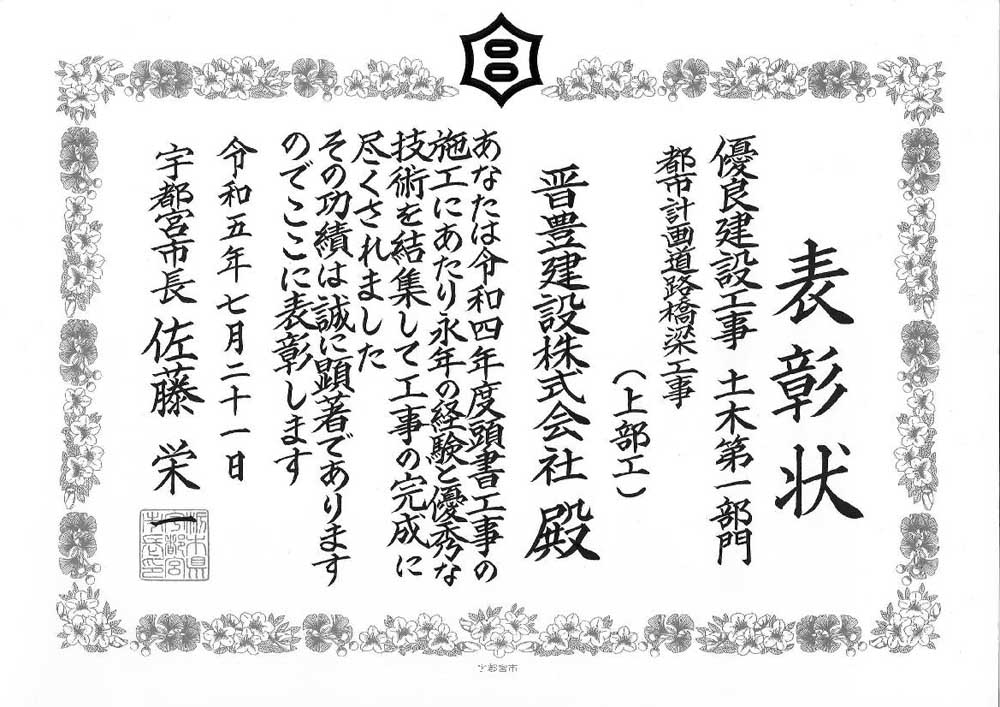 表彰状
優良建設工事 土木第一部門
都市計画道路橋梁工事
（上部工）
晋豊建設株式会社 殿
あなたは令和四年度頭書工事の
施工にあたり永年の経験と優秀な
技術を結集して工事の完成に
尽くされました
その功績は誠に顕著であります
のでここに表彰します
令和五年七月二十一日
宇都宮市長 佐藤 栄一
栃木県
宇都宮
市長印
宇都宮市